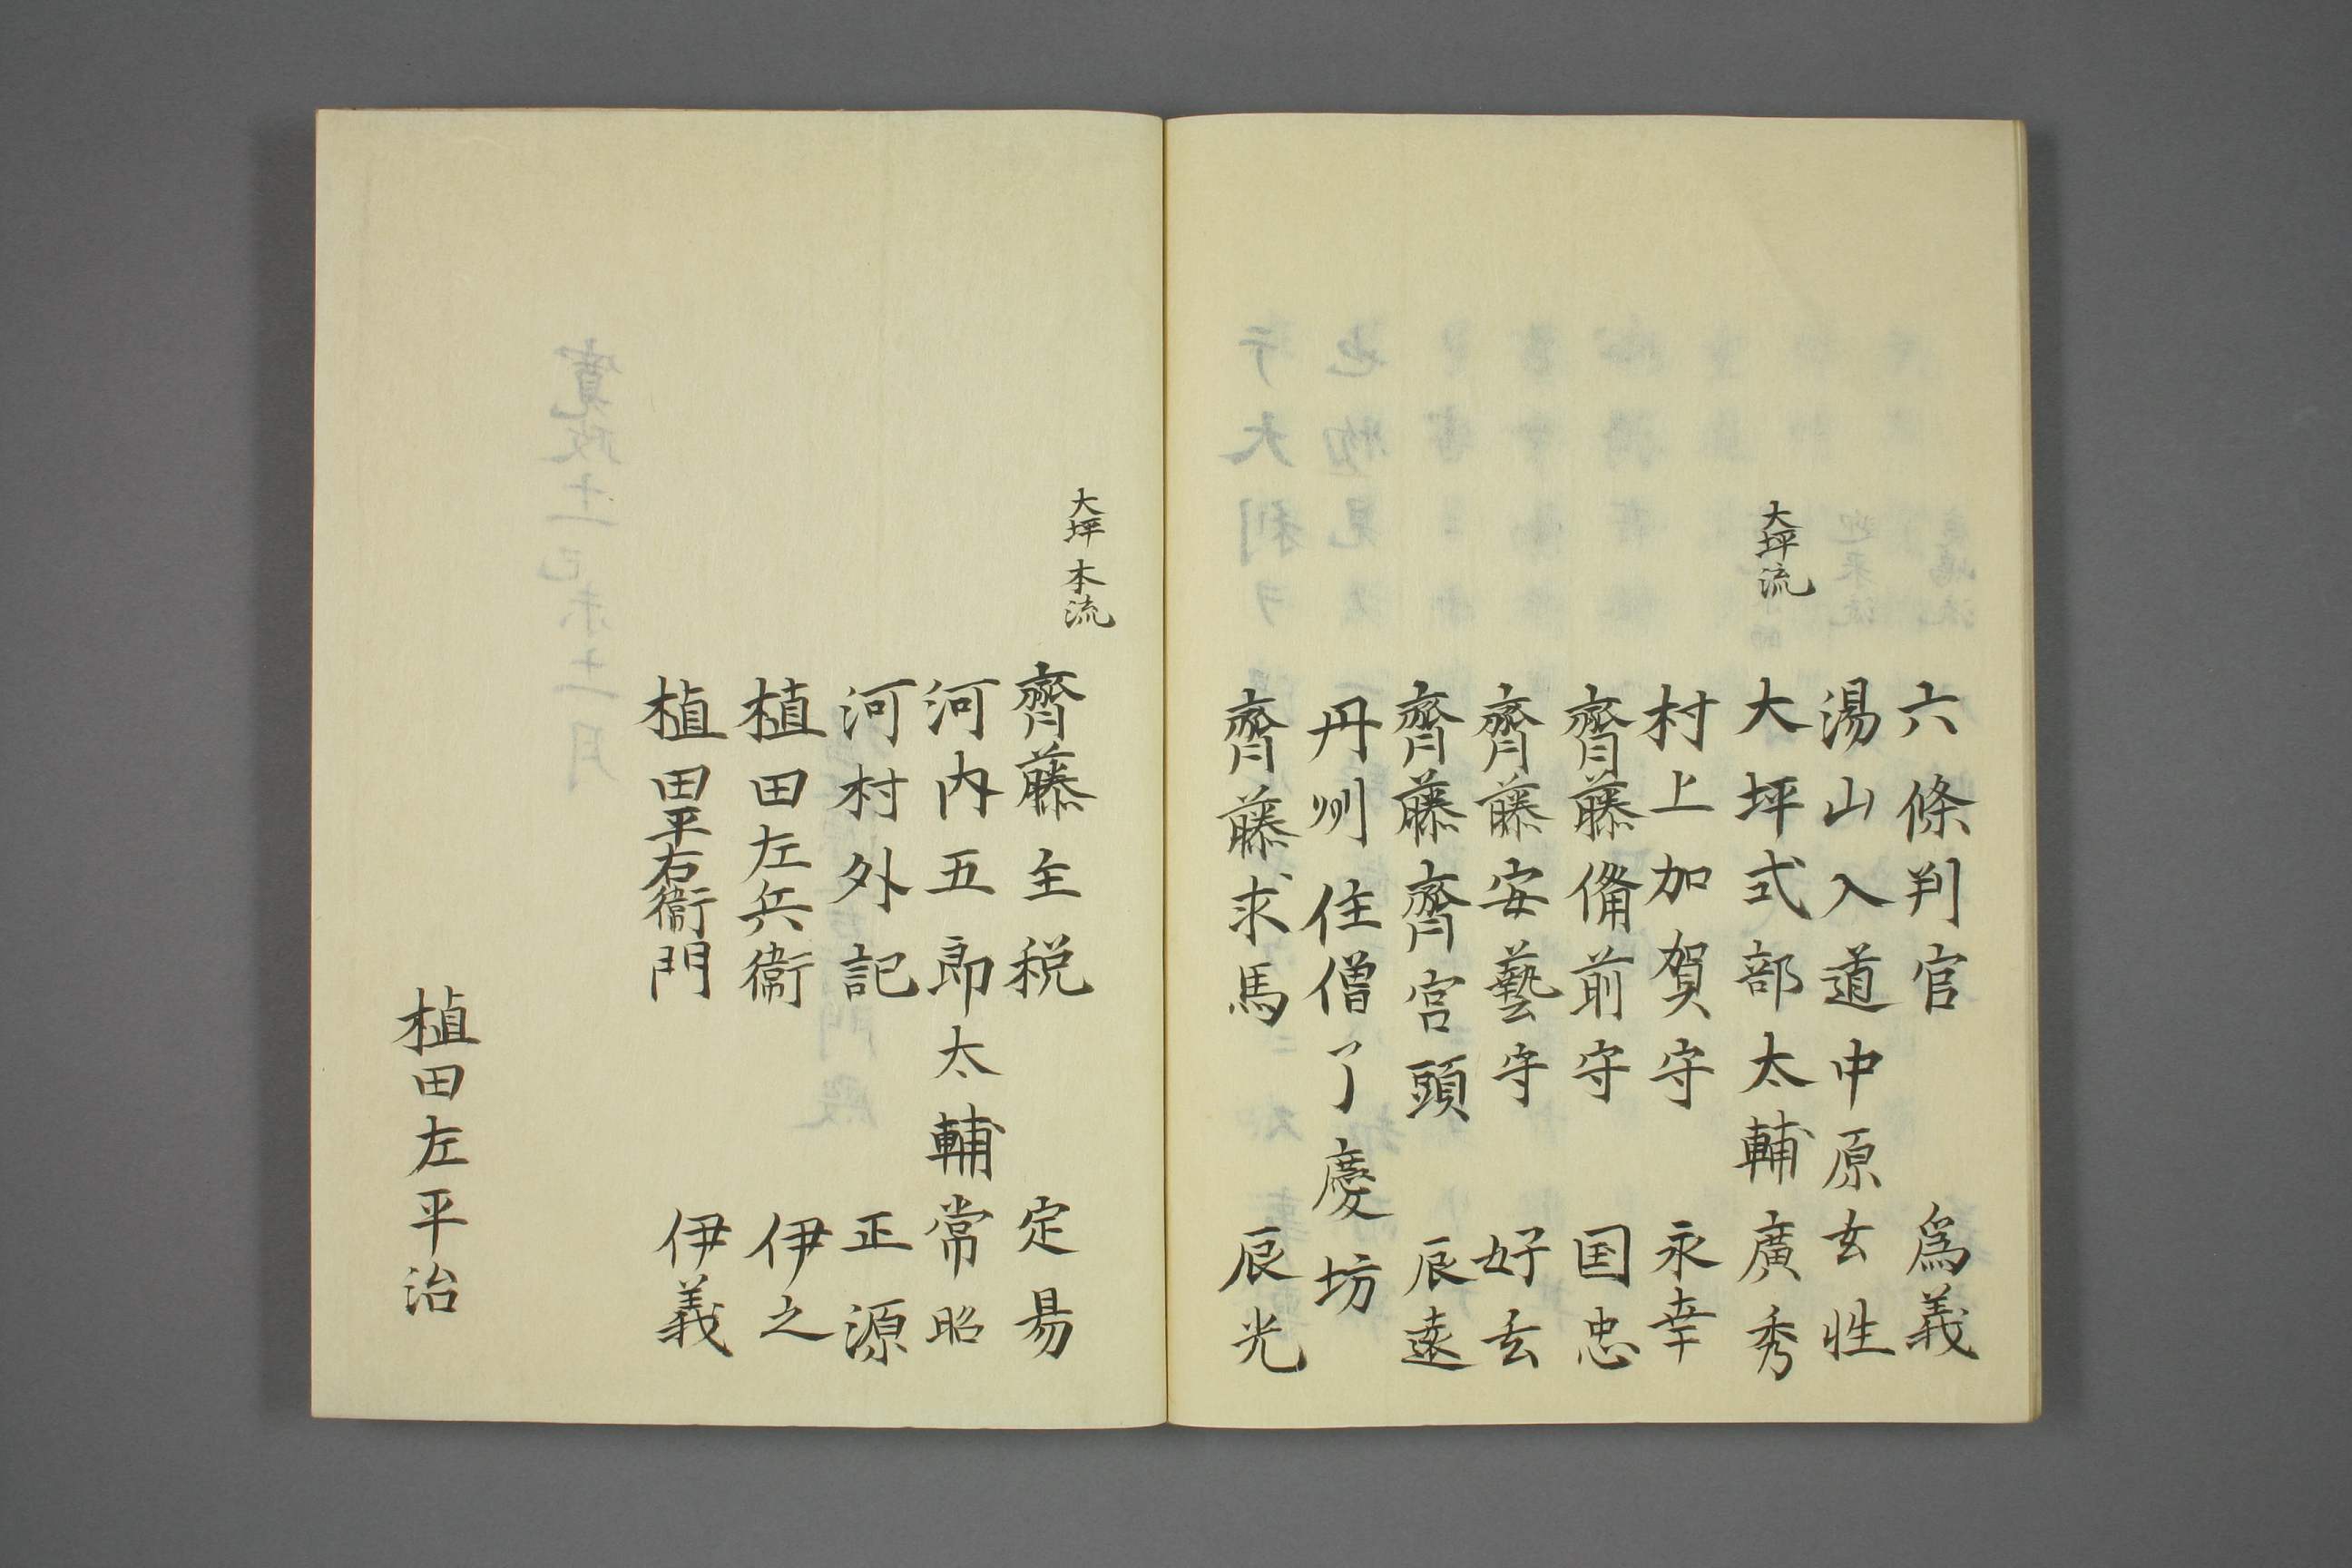 六條判官 爲義
湯山入道中原玄性
大坪流
大坪式部太輔廣秀
村上加賀守 永幸
齊藤備前守 国忠
齊藤安藝守 好玄
齊藤齊宮頭 辰遠
丹州住僧了慶坊
齊藤求馬 辰光
大坪本流
齊藤主税 定易
河内五郎太輔常昭
河村外記 正源
植田左兵衞 伊之
植田平右衞門 伊義
植田左平治